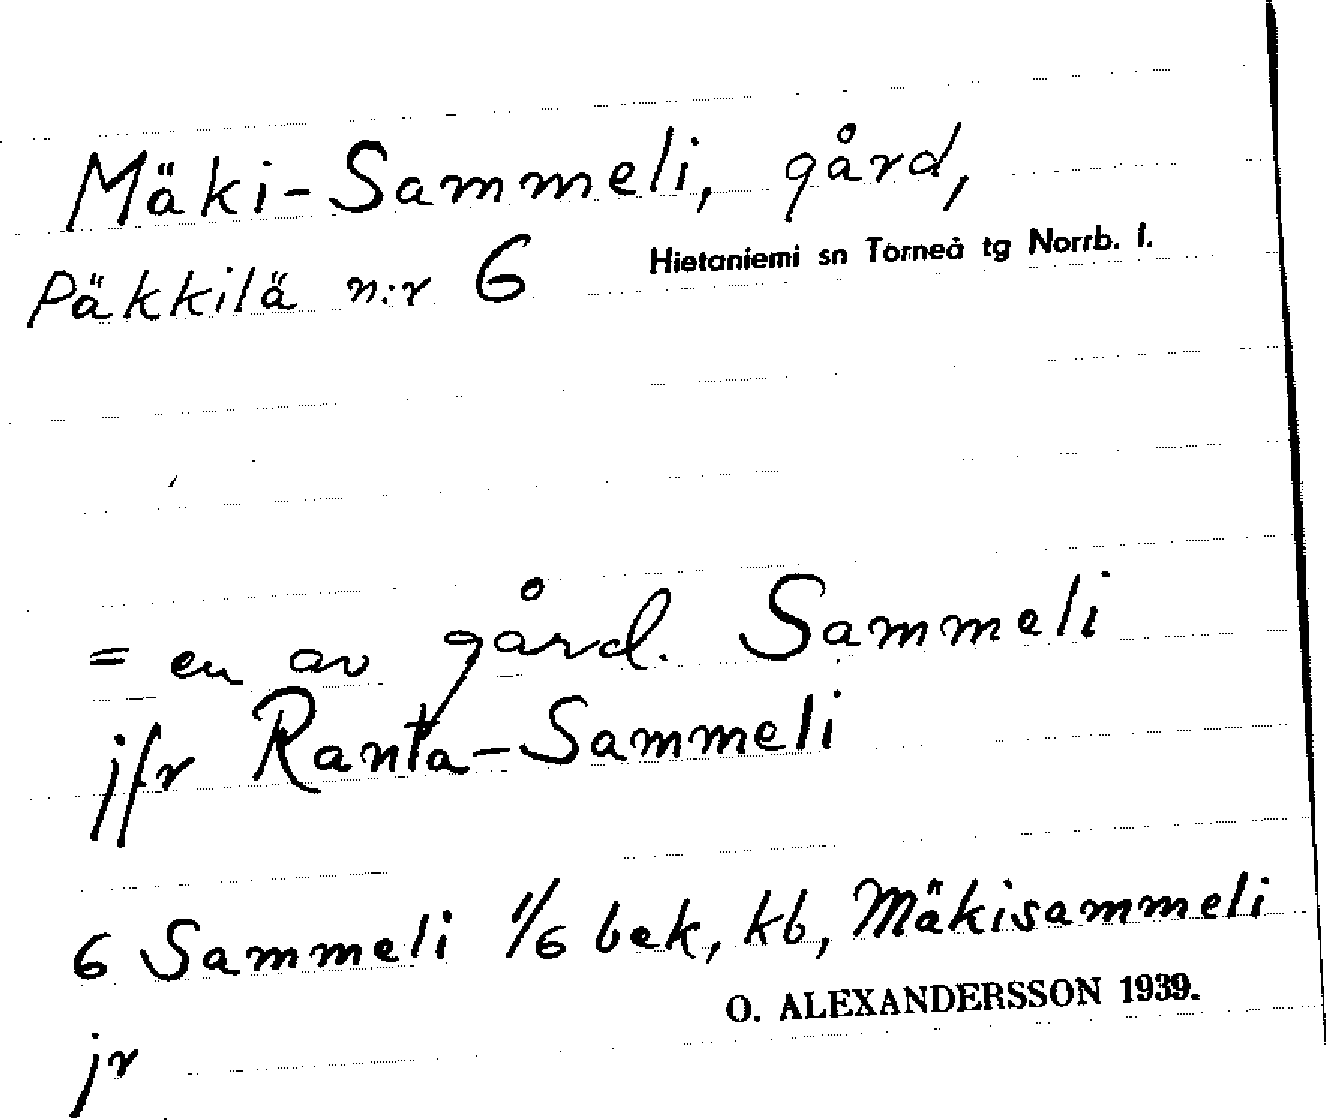 Mäki-Sammeli, gård,
Päkkilä n:r 6 Hietaniemi sn Torneå tg Norrb. l.
= en av gård. Sammeli
jfr Ranta-Sammeli
6 Sammeli 1/6 bek, kb, Mäkisammeli
O. ALEXANDERSSON 1939.
jr